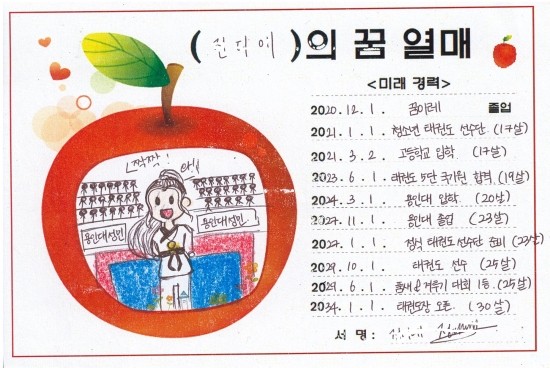 ( )의 꿈 열매
<미래 경력>
2020.12.1. 꿈이레 졸업
2021.1.1. 청소년 태권도 선수단 (17살)
2021.3.2. 고등학교 입학 (17살)
2023.6.1. 태권도 5단 국기원 합격 (19살)
2024.3.1. 용인대 입학 (20살)
2027.11.1. 용인대 졸업 (23살)
2027.1.1. 정식 태권도 선수단 준비 (23살)
2029.10.1. 태권도 선수 (25살)
2029.6.1. 품새 & 겨루기 대회 1등 (25살)
2034.1.1. 태권도장 오픈 (30살)
서 명 :
짝짝!
용인대성민
용인대성민